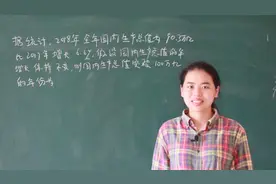 据统计,2018年全年国内生产总值为90.3万亿
比2017年增长6.6%,假设国内生产总值的年
增长率保持不变,则国内生产总值突破100万亿
的年份为